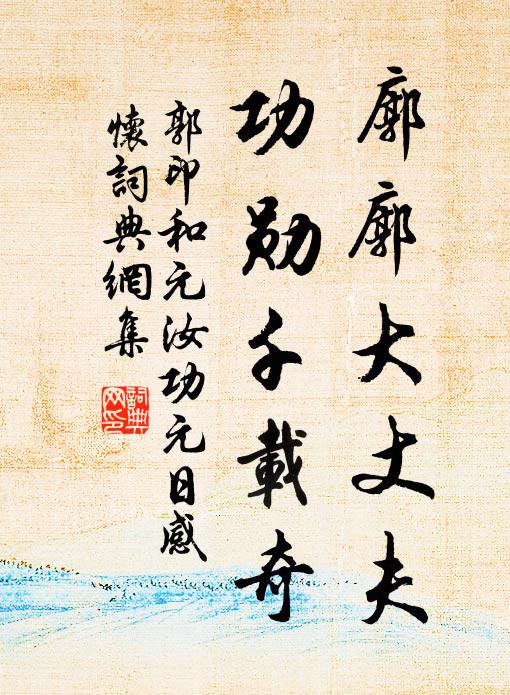 廓廓大丈夫
功勛千載奇
郭印和元汝功元日感
懷詞典網集
詞典
网印